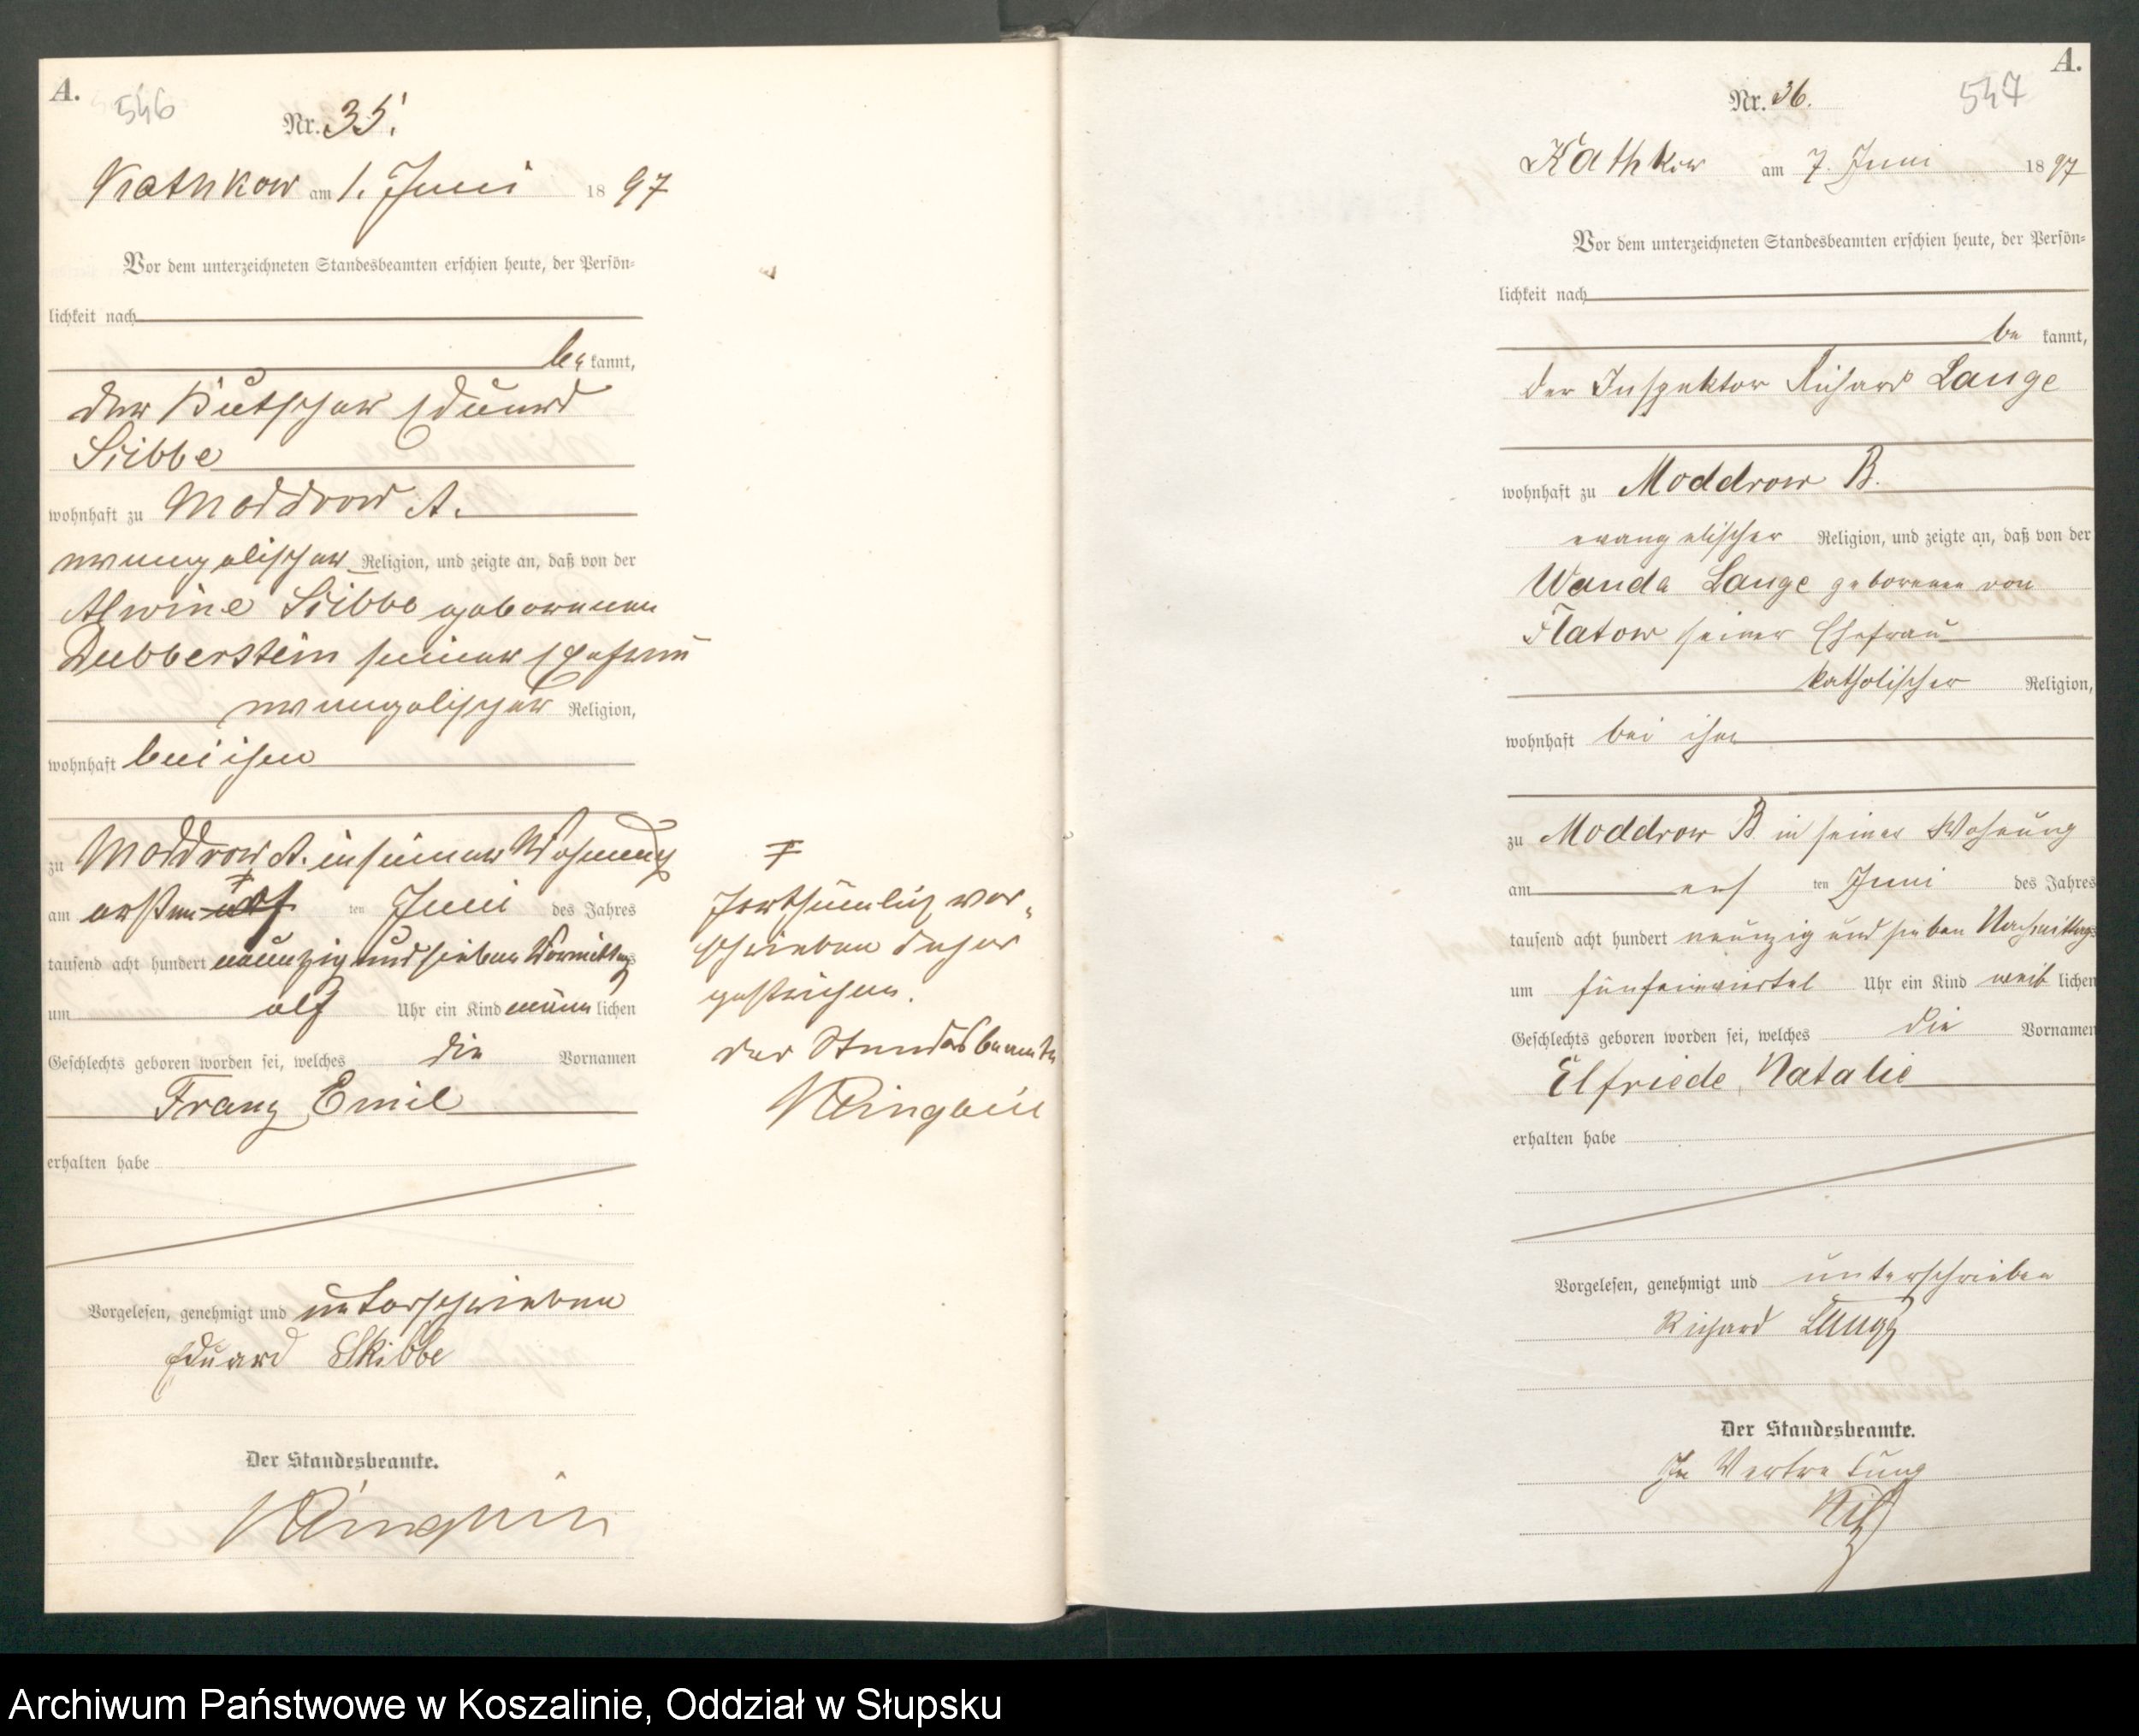 A.
546
Nr. 35.
Kathkow am 1. Juni 1897
Vor dem unterzeichneten Standesbeamten erschien heute, der Persön-
lichkeit nach
be kannt,
der Kutscher Eduard
Skibbe
wohnhaft zu Moddrow A.
evangelischer Religion, und zeigte an, daß von der
Alwine Skibbe geborenen
Dubberstein seiner Ehefrau
evangelischer Religion,
wohnhaft bei ihm
zu Moddrow A. in seiner Wohnung
am ersten ten Juni des Jahres
tausend acht hundert neunzig und sieben Vormittags
um elf Uhr ein Kind männ lichen
Geschlechts geboren worden sei, welches die Vornamen
Franz Emil
erhalten habe
Vorgelesen, genehmigt und unterschrieben
Eduard Skibbe
Der Standesbeamte.
Irrthümlich ver-
schrieben daher
gestrichen.
der Standesbeamte
A.
547
Nr. 36.
Kathkow am 7. Juni 1897
Vor dem unterzeichneten Standesbeamten erschien heute, der Persön-
lichkeit nach
be kannt,
der Inspektor Richard Lange
wohnhaft zu Moddrow B.
evangelischer Religion, und zeigte an, daß von der
Wanda Lange geborenen von
Flatow seiner Ehefrau
katholischer Religion,
wohnhaft bei ihm
zu Moddrow B. in seiner Wohnung
am ers ten Juni des Jahres
tausend acht hundert neunzig und sieben Nachmittags
um fünfeinviertel Uhr ein Kind weib lichen
Geschlechts geboren worden sei, welches die Vornamen
Elfriede, Natalie
erhalten habe
Vorgelesen, genehmigt und unterschrieben
Richard Lange
Der Standesbeamte.
In Vertretung
Archiwum Państwowe w Koszalinie, Oddział w Słupsku